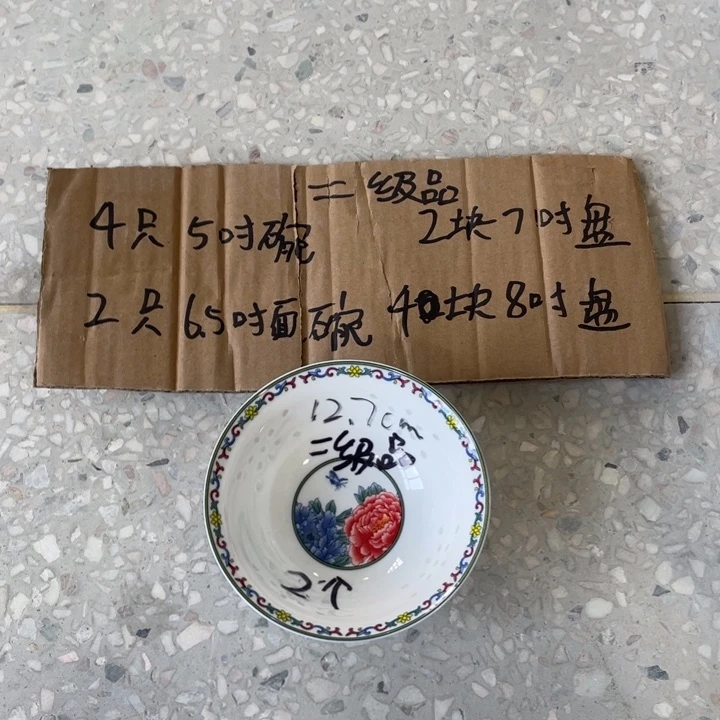 二级品
4只 5吋碗 2块7吋盘
2只 6.5吋面碗 4块8吋盘
12.7cm
二级品
2个